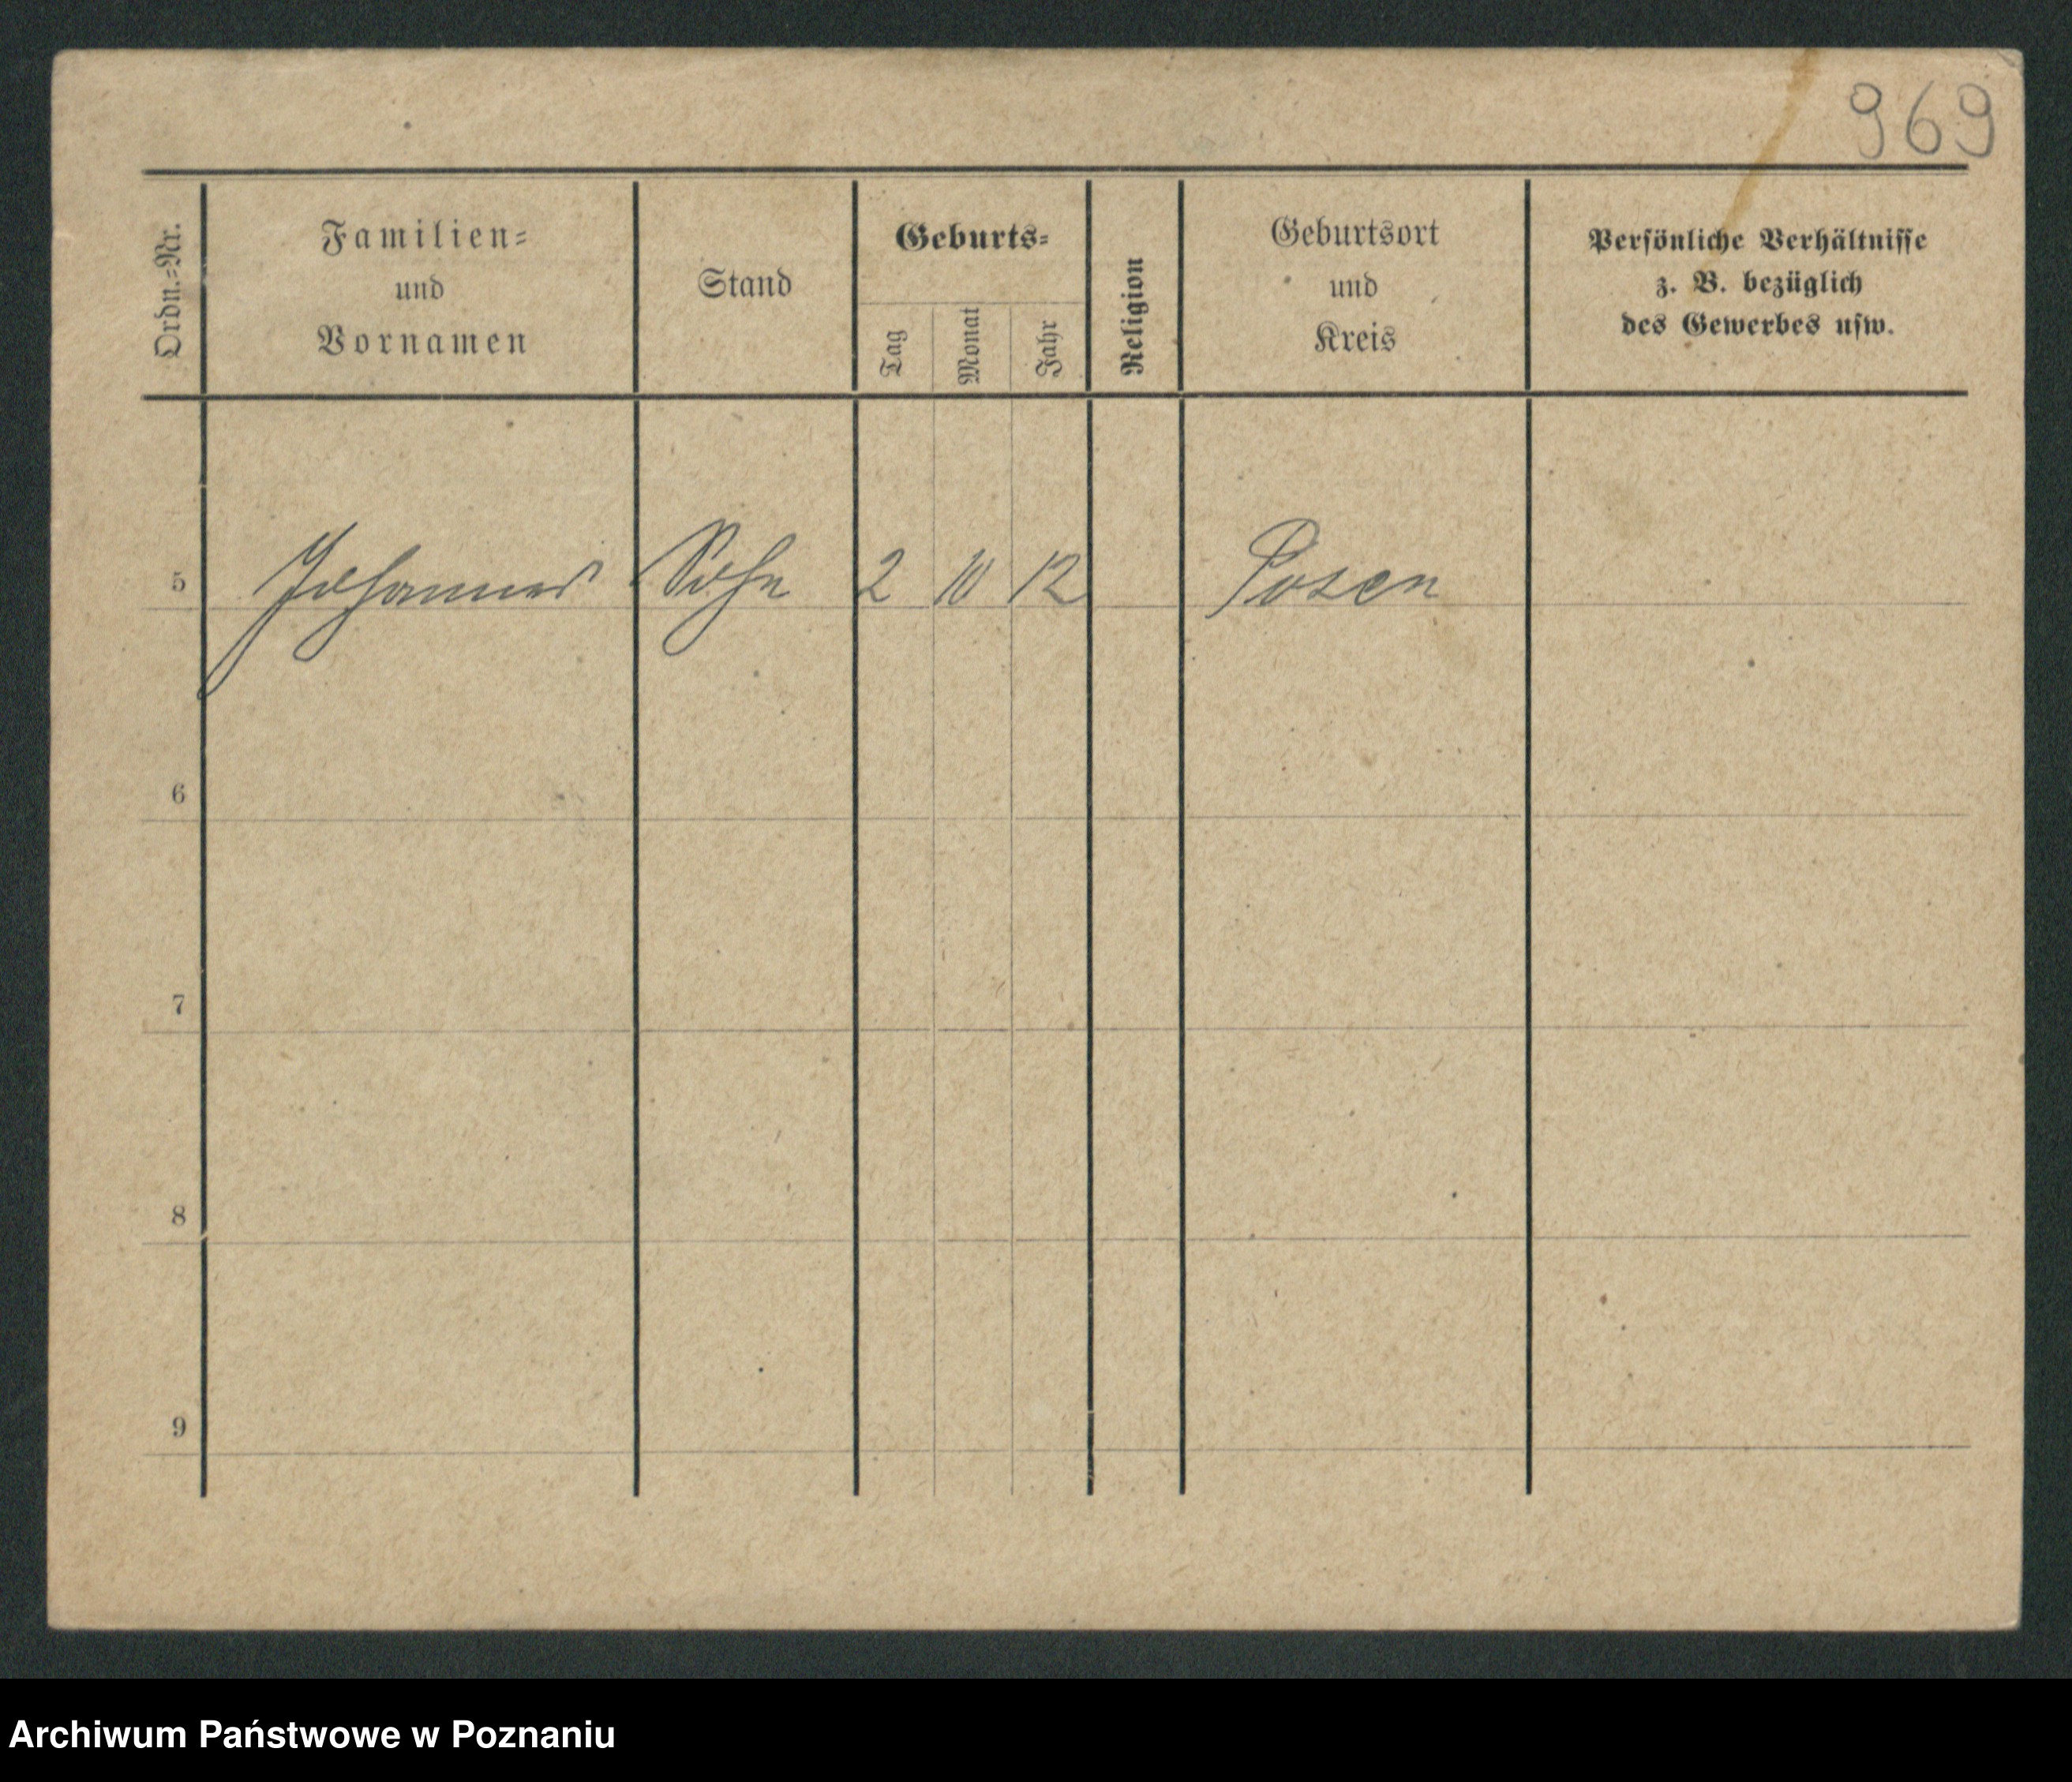 969
Ordn.-Nr.
Familien-
und
Vornamen
Stand
Geburts-
Tag
Monat
Jahr
Religion
Geburtsort
und
Kreis
Persönliche Verhältnisse
z. B. bezüglich
des Gewerbes usw.
5 Johannes Sohn 2 10 12 Posen
6
7
8
9
Archiwum Państwowe w Poznaniu